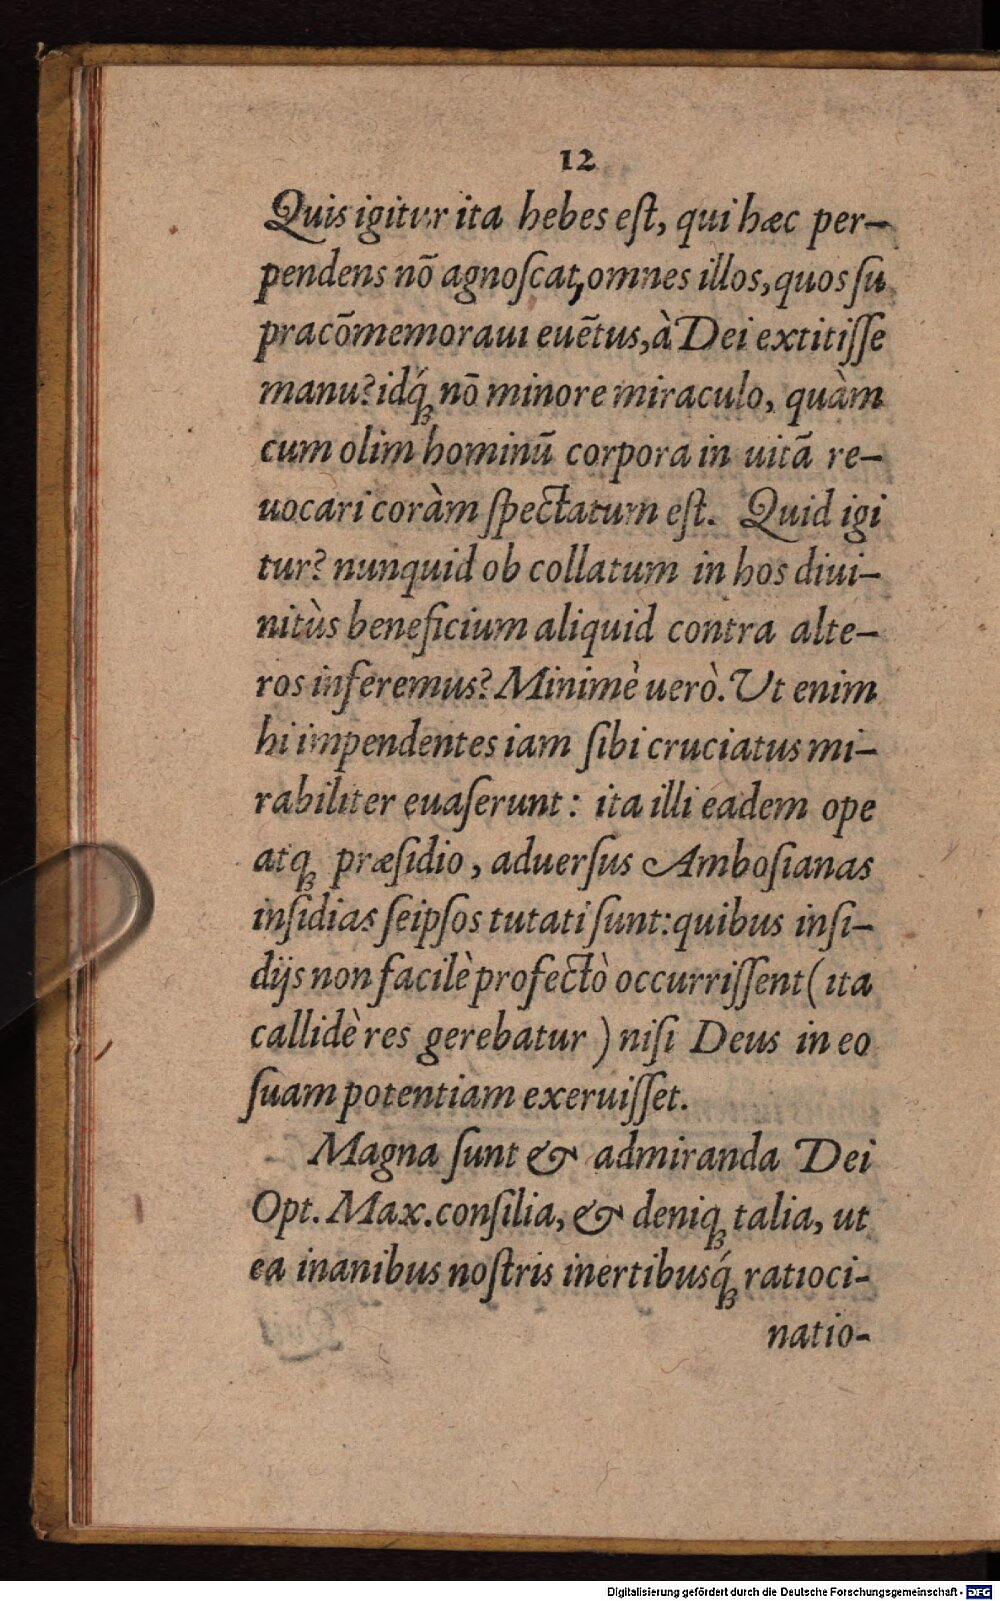 12
Quis igitur ita hebes eſt, qui hæc per-
pendens nō agnoſcat, omnes illos, quos ſu
pracōmemoraui euētus, à Dei extitiſſe
manu? idq́ꝫ nō minore miraculo, quàm
cum olim hominū corpora in uitā re-
uocari coràm ſpectatum eſt. Quid igi
tur? nunquid ob collatum in hos diui-
nitùs beneficium aliquid contra alte-
ros inferemus? Minimè uerò. Ut enim
hi impendentes iam ſibi cruciatus mi-
rabiliter euaſerunt: ita illi eadem ope
atqꝫ præſidio, aduerſus Amboſianas
inſidias ſeipſos tutati ſunt: quibus inſi-
dijs non facilè profectò occurriſſent (ita
callidè res gerebatur) niſi Deus in eo
ſuam potentiam exeruiſſet.
Magna ſunt & admiranda Dei
Opt. Max. conſilia, & deniqꝫ talia, ut
ea inanibus noſtris inertibusq́ꝫ ratioci-
natio-
Digitalisierung gefördert durch die Deutsche Forschungsgemeinschaft - DFG